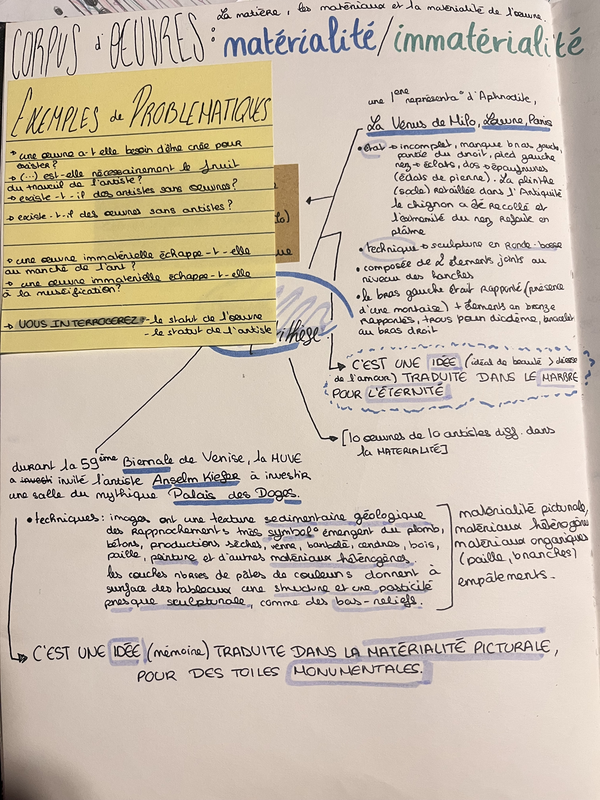 La matière, les matériaux et la matérialité de l'œuvre.
CORPUS d'ŒUVRES: matérialité/immatérialité
EXEMPLES de PROBLEMATIQUES
→ une œuvre a-t-elle besoin d'être crée pour
exister?
→ (...) est-elle nécessairement le fruit
du travail de l'artiste?
→ existe-t-il des artistes sans œuvres?
→ existe-t-il des œuvres sans artistes?
→ une œuvre immatérielle échappe-t-elle
au marché de l'art?
→ une œuvre immatérielle échappe-t-elle
à la muséification?
→ VOUS INTERROGEREZ: - le statut de l'œuvre
- le statut de l'artiste
une 1ère représenta° d'Aphrodite,
La Vénus de Milo, Louvre, Paris
• état → incomplet, manque bras gauche,
partie du droit, pied gauche
nez → éclats, dos → épaufrures
(éclats de pierre). La plinthe
(socle) retaillée dans l'Antiquité
le chignon a été recollé et
l'extrémité du nez refaite en
plâtre
• technique → sculpture en ronde-bosse
• composée de 2 éléments joints au
niveau des hanches
• le bras gauche était rapporté (présence
d'une mortaise) + éléments en bronze
rapportés, trous pour diadème, bracelet
au bras droit
→ C'EST UNE IDÉE (idéal de beauté) déesse
de l'amour) TRADUITE DANS LE MARBRE
POUR L'ÉTERNITÉ
→ [10 œuvres de 10 artistes diff. dans
la MATERIALITÉ]
durant la 59ème Biennale de Venise, la MUVE
a investi invité l'artiste Anselm Kiefer à investir
une salle du mythique Palais des Doges.
• techniques: images ont une texture sedimentaire géologique
des rapprochements très symbol° émergent du plomb,
bétons, productions sèches, verre, barbelé, cendres, bois,
paille, peinture et d'autres matériaux hétérogènes.
les couches nbrses de pâtes de couleurs donnent à
surface des tableaux une structure et une plasticité
presque sculpturale, comme des bas-reliefs.
matérialité picturale,
matériaux hétérogènes
matériaux organiques
(paille, branches)
empâtements.
→ C'EST UNE IDÉE (mémoire) TRADUITE DANS LA MATÉRIALITÉ PICTURALE,
POUR DES TOILES MONUMENTALES.